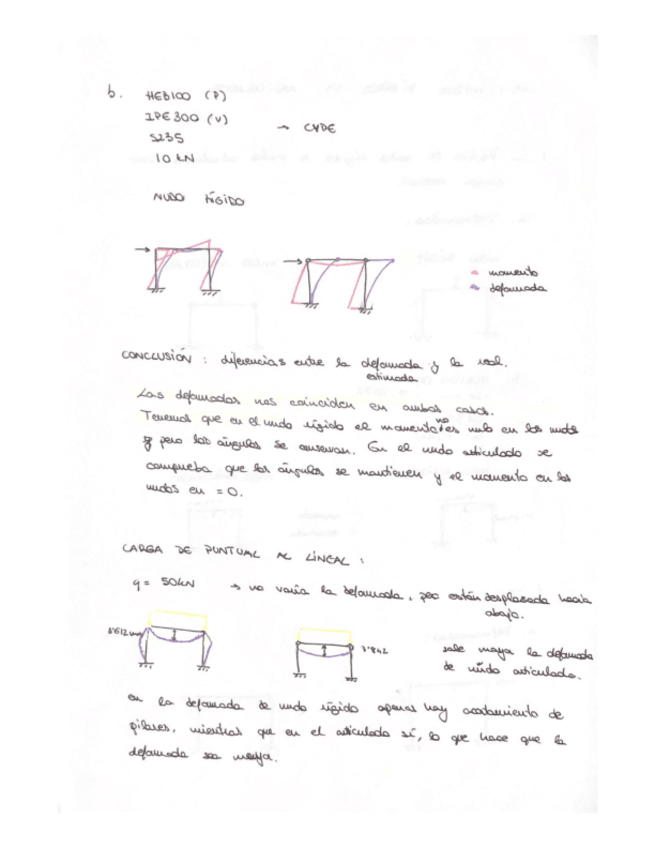 b. HEB100 (P)
IPE 300 (V)
→ CYPE
S235
10 kN
NUDO RÍGIDO
momento
deformada
CONCLUSIÓN : diferencias entre la deformada y la real.
estimada
Las deformadas nos coinciden en ambos casos.
Tenemos que en el nudo rígido el momento no es nulo en los nudos
pero los ángulos se conservan. En el nudo articulado se
comprueba que los ángulos se mantienen y el momento en los
nudos en = 0.
CARGA DE PUNTUAL A LINEAL :
q = 50kN → no varía la deformada, pero están desplazada hacia
abajo.
3'842
sale mayor la deformada
de nudo articulado.
en la deformada de nudo rígido apenas hay acortamiento de
pilares, mientras que en el articulado sí, lo que hace que la
deformada sea mayor.